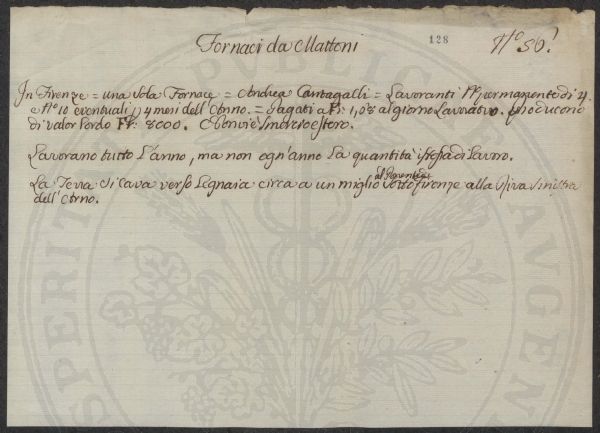 Fornaci da Mattoni
128
Nº 56!
In Firenze = una sola Fornace = Andrea Cantagalli = Lavoranti Nº permanente di 4
e Nº 10 eventuali p 4 mesi dell'Anno. = Pagati a Fi: 1,08 al giorno Lavorativo. producono
di valor lordo Ff: 8000. Non vi è smercio estero.
Lavorano tutto l'anno, ma non ogn'anno la quantità istessa di lavoro.
La Terra si cava verso Legnaia circa a un miglio sotto Firenze alla Riva sinistra
dell'Arno.
PUBLICA
AUGENT
SPERITA